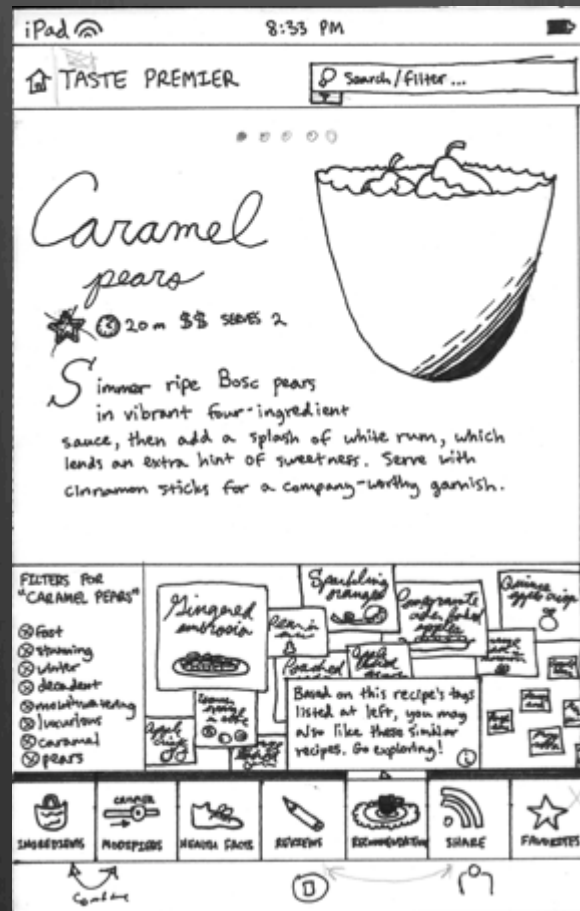 iPad
8:33 PM
TASTE PREMIER
Search/filter...
Caramel
pears
20m $$ SERVES 2
Simmer ripe Bosc pears
in vibrant four-ingredient
sauce, then add a splash of white rum, which
lends an extra hint of sweetness. Serve with
cinnamon sticks for a company-worthy garnish.
FILTERS FOR
"CARAMEL PEARS"
fast
stunning
winter
decadent
mouthwatering
luxurious
caramel
pears
Gingered
ambrosia
Sparkling
oranges
Pomegranate
cider baked
apples
Quince
apple crisp
Poached
Apple
Based on this recipe's tags
listed at left, you may
also like these similar
recipes. Go exploring!
i
INGREDIENTS
MODIFIERS
HEALTH FACTS
REVIEWS
RECOMMENDATIONS
SHARE
FAVORITES
Combine